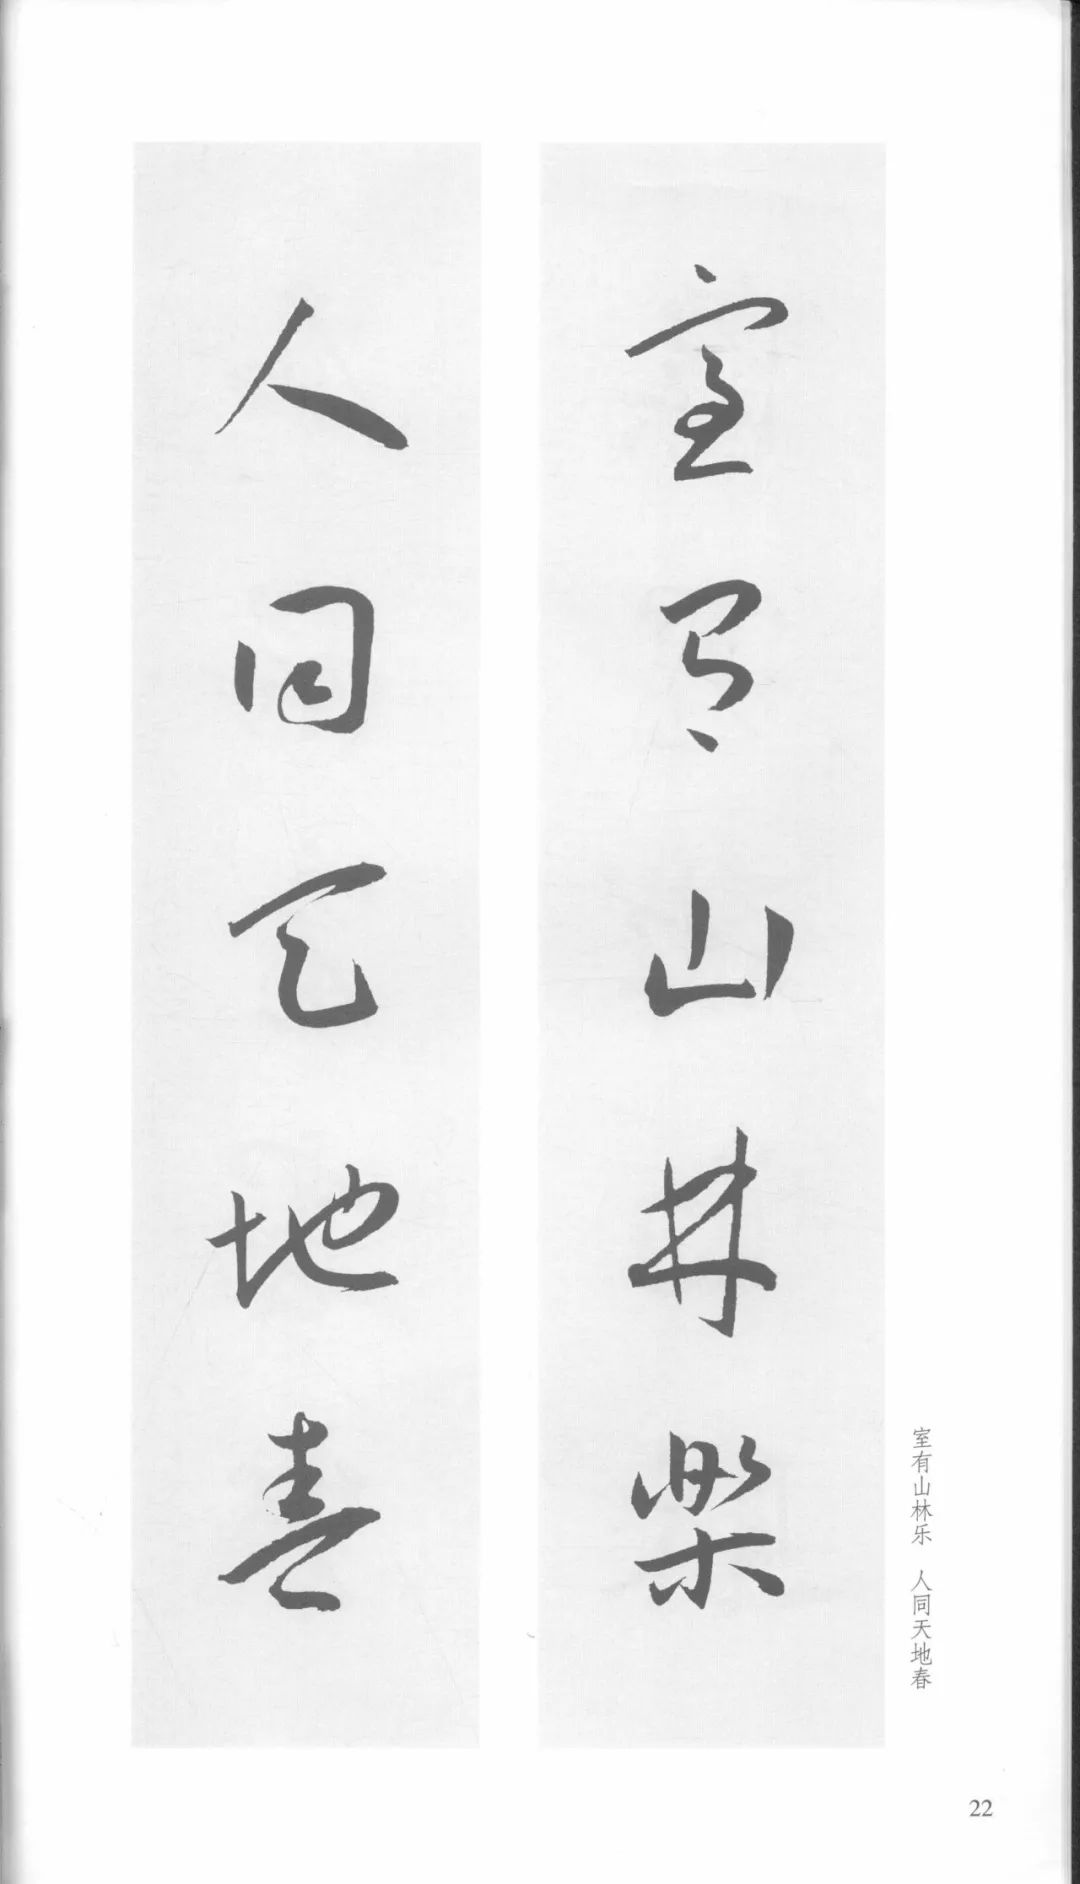 室有山林樂
人同天地春
室有山林乐　人同天地春
22